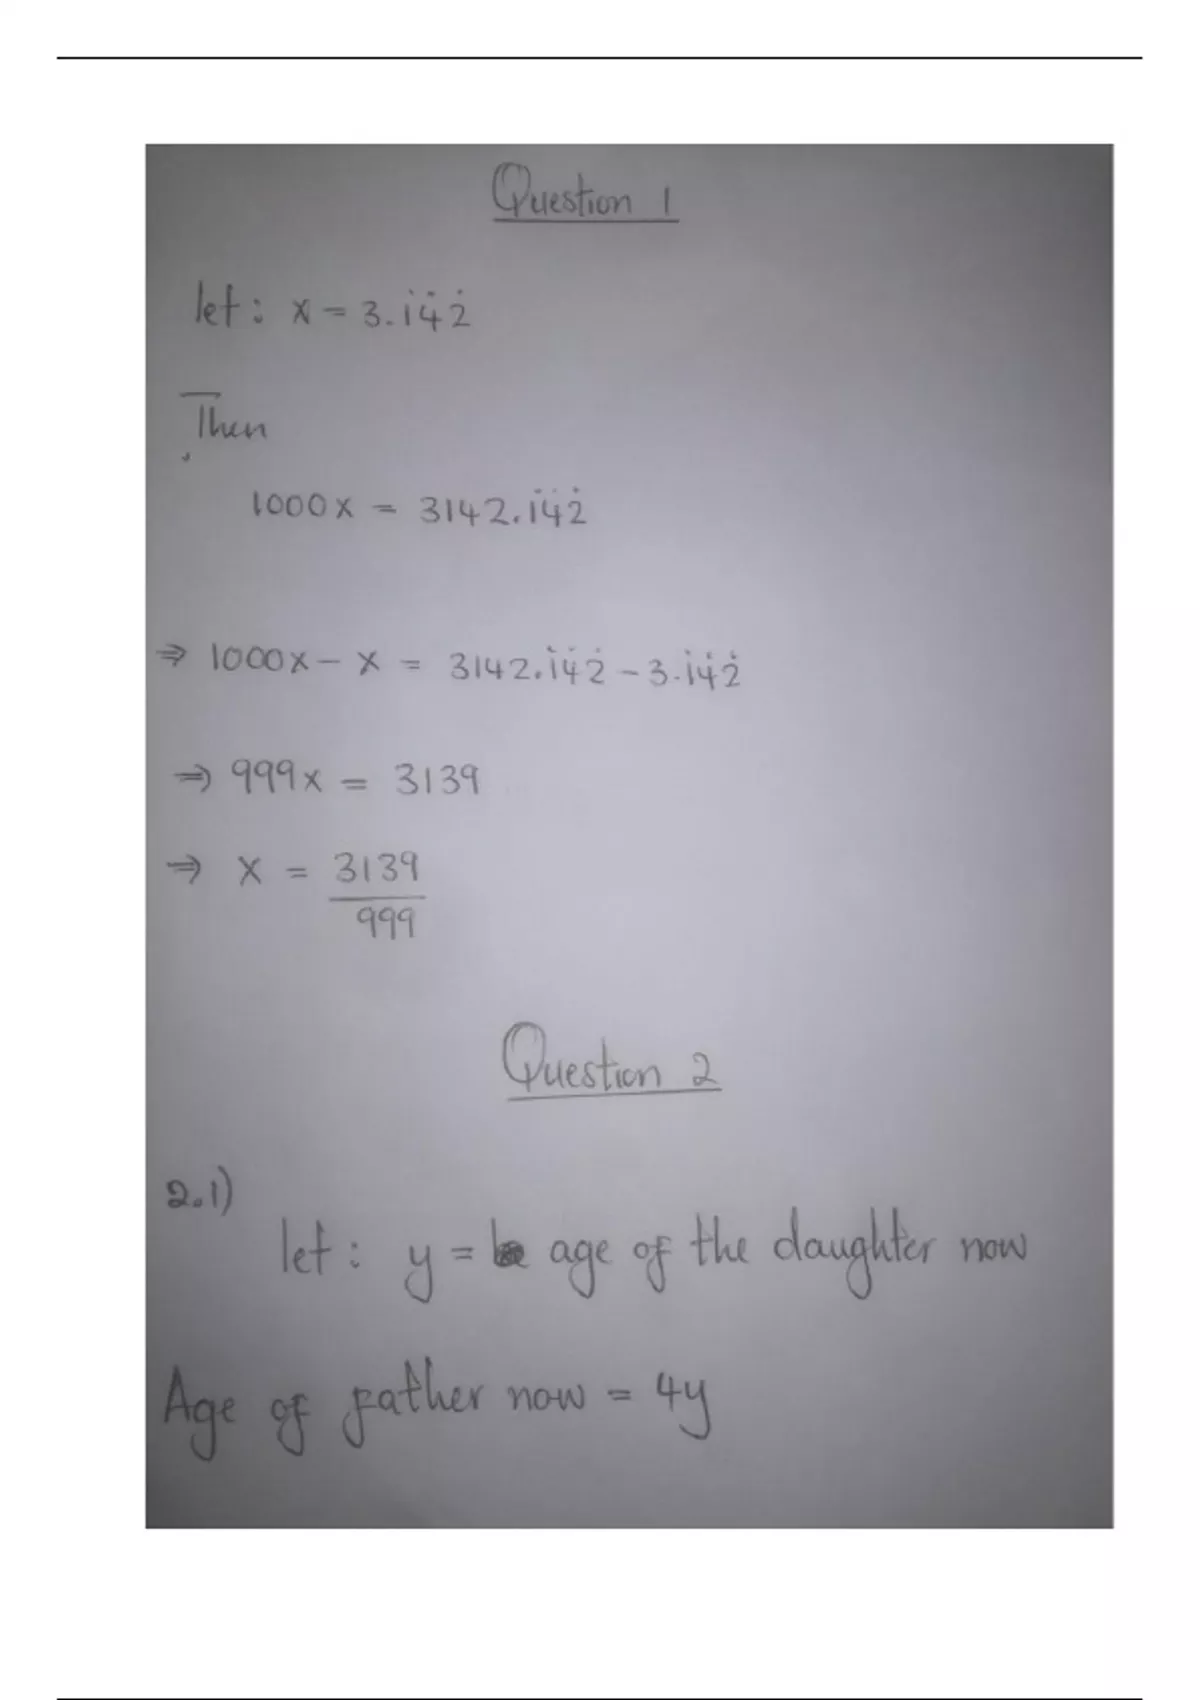 Question 1
let: x = 3.1̇4̇2̇
Then
1000x = 3142.1̇4̇2̇
⇒ 1000x - x = 3142.1̇4̇2̇ - 3.1̇4̇2̇
⇒ 999x = 3139
⇒ x = 3139
999
Question 2
2.1)
let: y = age of the daughter now
Age of father now = 4y